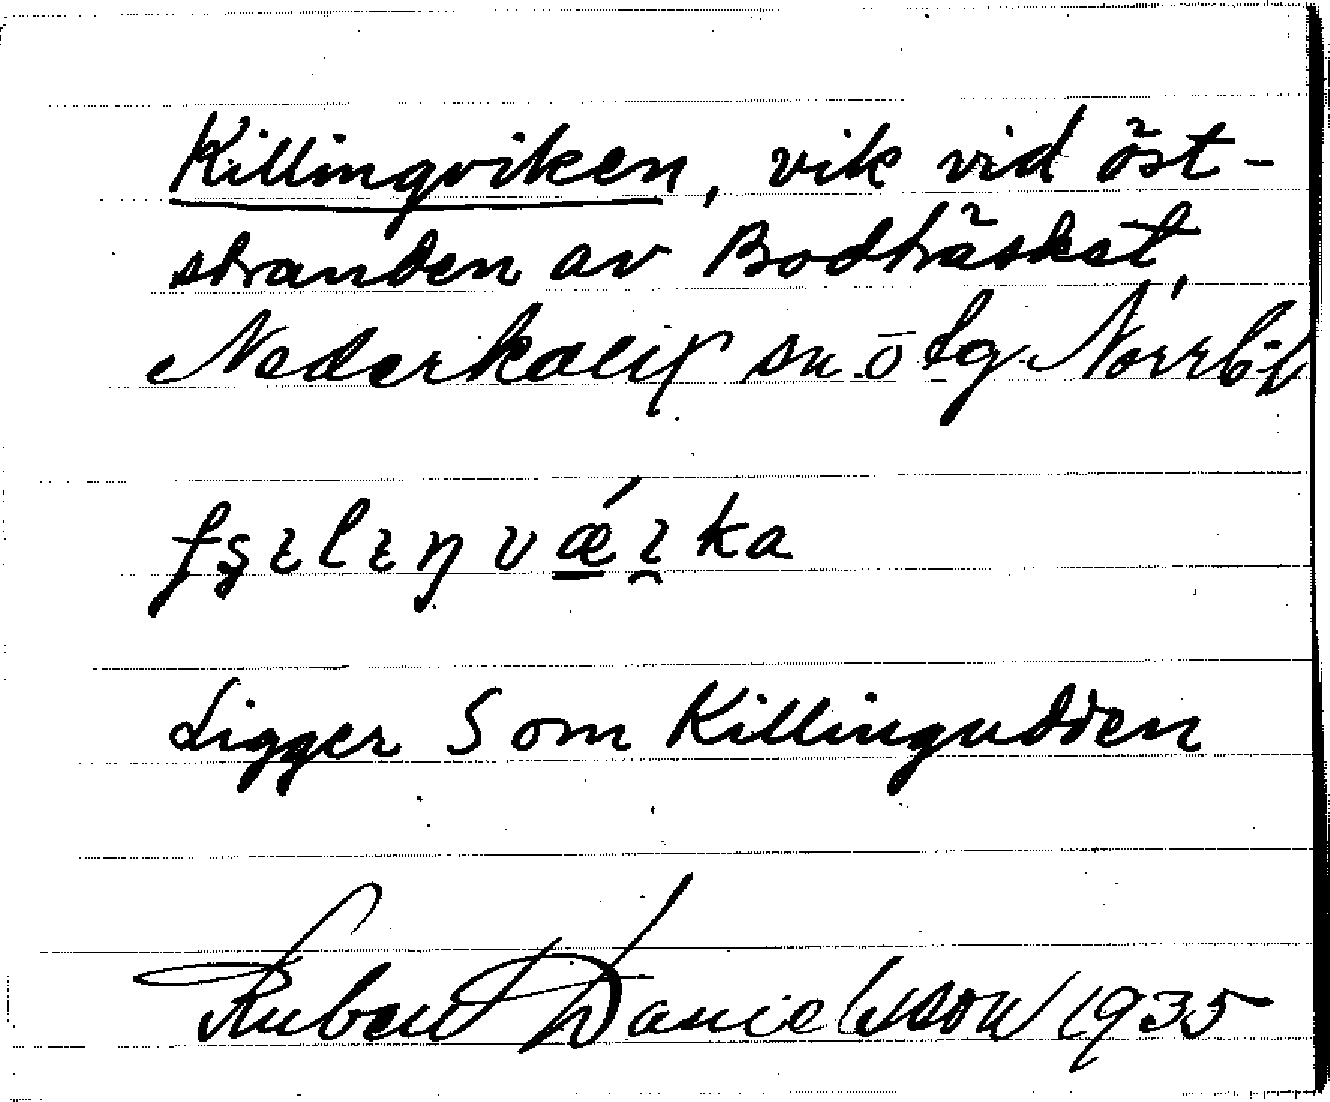 Killingviken, vik vid öst-
stranden av Bodträsket,
Nederkalix sn o tg Norrb.
Ligger S om Killingudden
Ruben Danielsson 1935